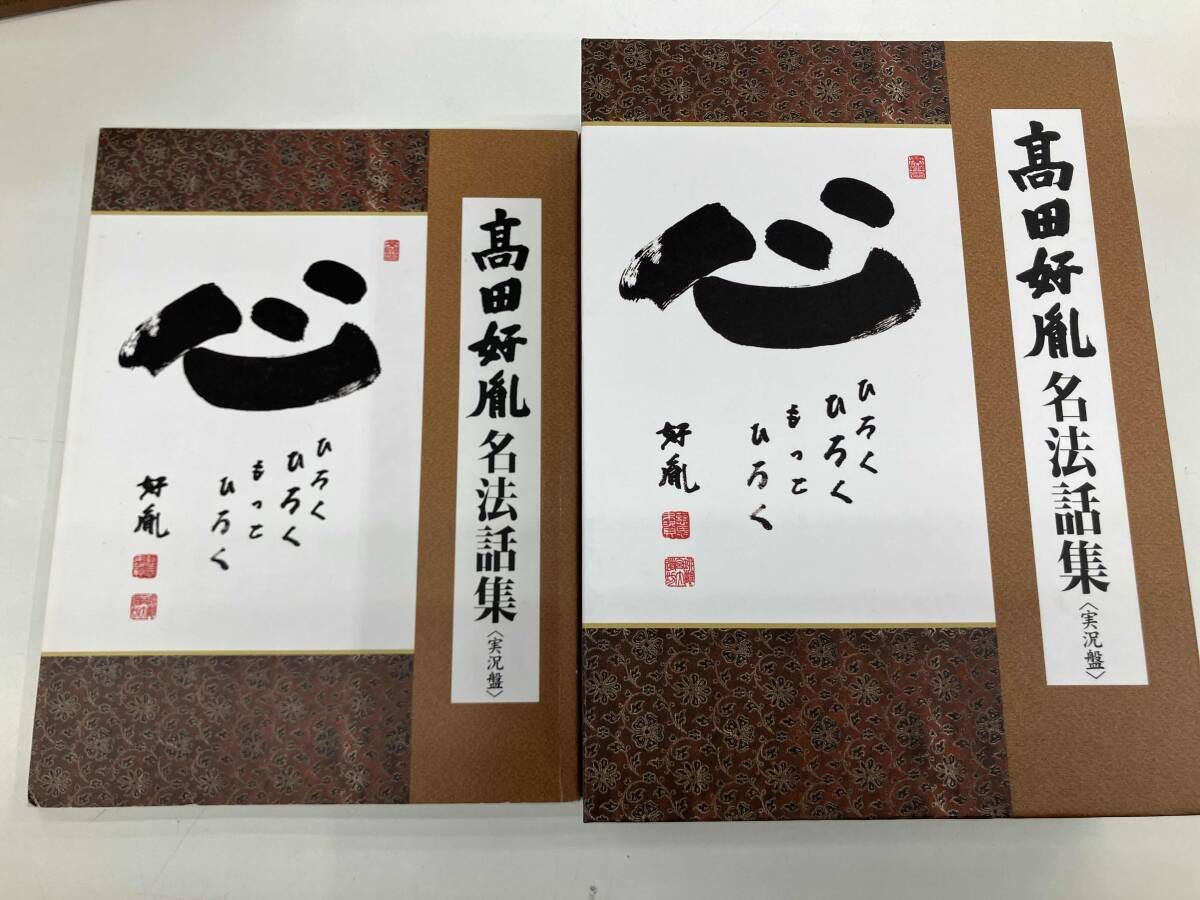 髙田好胤名法話集〈実況盤〉
心
ひろく
ひろく
もっと
ひろく
好胤
髙田好胤名法話集〈実況盤〉
心
ひろく
ひろく
もっと
ひろく
好胤